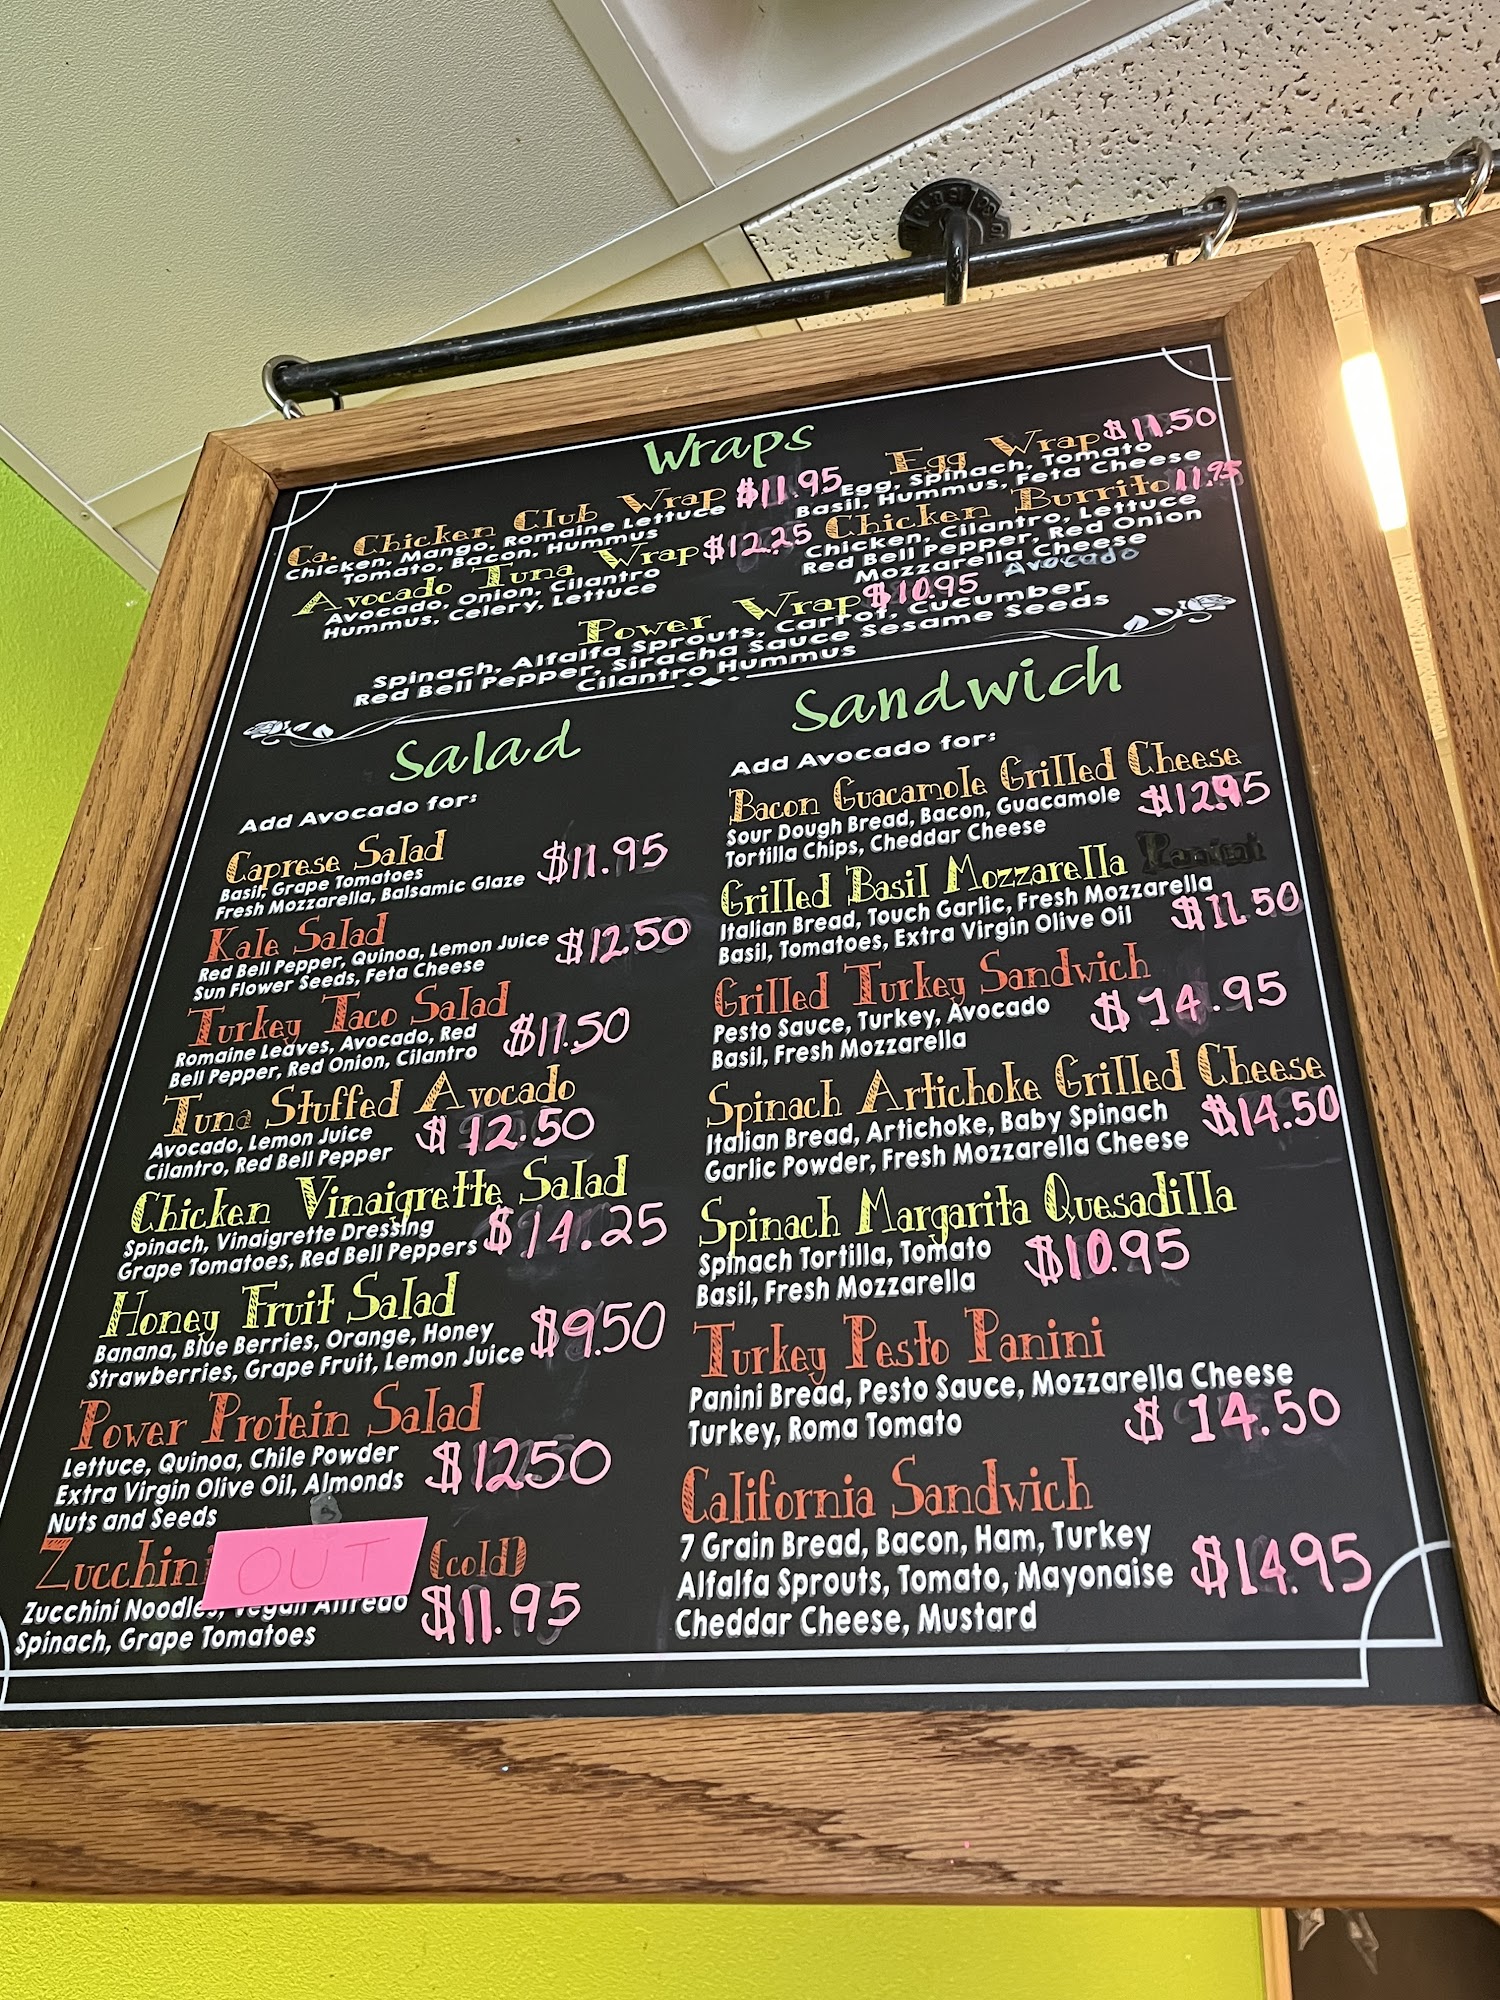 Wraps
Ca. Chicken Club Wrap $11.95
Chicken, Mango, Romaine Lettuce
Tomato, Bacon, Hummus
Avocado Tuna Wrap $12.25
Avocado, Onion, Cilantro
Hummus, Celery, Lettuce
Egg Wrap $11.50
Egg, Spinach, Tomato
Basil, Hummus, Feta Cheese
Chicken Burrito 11.95
Chicken, Cilantro, Lettuce
Red Bell Pepper, Red Onion
Mozzarella Cheese
Avocado
Power Wrap $10.95
Spinach, Alfalfa Sprouts, Carrot, Cucumber
Red Bell Pepper, Siracha Sauce Sesame Seeds
Cilantro Hummus
Salad
Add Avocado for:
Caprese Salad
Basil, Grape Tomatoes
Fresh Mozzarella, Balsamic Glaze $11.95
Kale Salad
Red Bell Pepper, Quinoa, Lemon Juice $12.50
Sun Flower Seeds, Feta Cheese
Turkey Taco Salad
Romaine Leaves, Avocado, Red $11.50
Bell Pepper, Red Onion, Cilantro
Tuna Stuffed Avocado
Avocado, Lemon Juice $12.50
Cilantro, Red Bell Pepper
Chicken Vinaigrette Salad
Spinach, Vinaigrette Dressing $14.25
Grape Tomatoes, Red Bell Peppers
Honey Fruit Salad
Banana, Blue Berries, Orange, Honey $9.50
Strawberries, Grape Fruit, Lemon Juice
Power Protein Salad
Lettuce, Quinoa, Chile Powder $1250
Extra Virgin Olive Oil, Almonds
Nuts and Seeds
Zucchini OUT (cold)
Zucchini Noodles, Vegan Alfredo $11.95
Spinach, Grape Tomatoes
Sandwich
Add Avocado for:
Bacon Guacamole Grilled Cheese
Sour Dough Bread, Bacon, Guacamole $12.95
Tortilla Chips, Cheddar Cheese
Grilled Basil Mozzarella Panini
Italian Bread, Touch Garlic, Fresh Mozzarella
Basil, Tomatoes, Extra Virgin Olive Oil $11.50
Grilled Turkey Sandwich
Pesto Sauce, Turkey, Avocado $14.95
Basil, Fresh Mozzarella
Spinach Artichoke Grilled Cheese
Italian Bread, Artichoke, Baby Spinach $14.50
Garlic Powder, Fresh Mozzarella Cheese
Spinach Margarita Quesadilla
Spinach Tortilla, Tomato $10.95
Basil, Fresh Mozzarella
Turkey Pesto Panini
Panini Bread, Pesto Sauce, Mozzarella Cheese
Turkey, Roma Tomato $14.50
California Sandwich
7 Grain Bread, Bacon, Ham, Turkey
Alfalfa Sprouts, Tomato, Mayonaise $14.95
Cheddar Cheese, Mustard